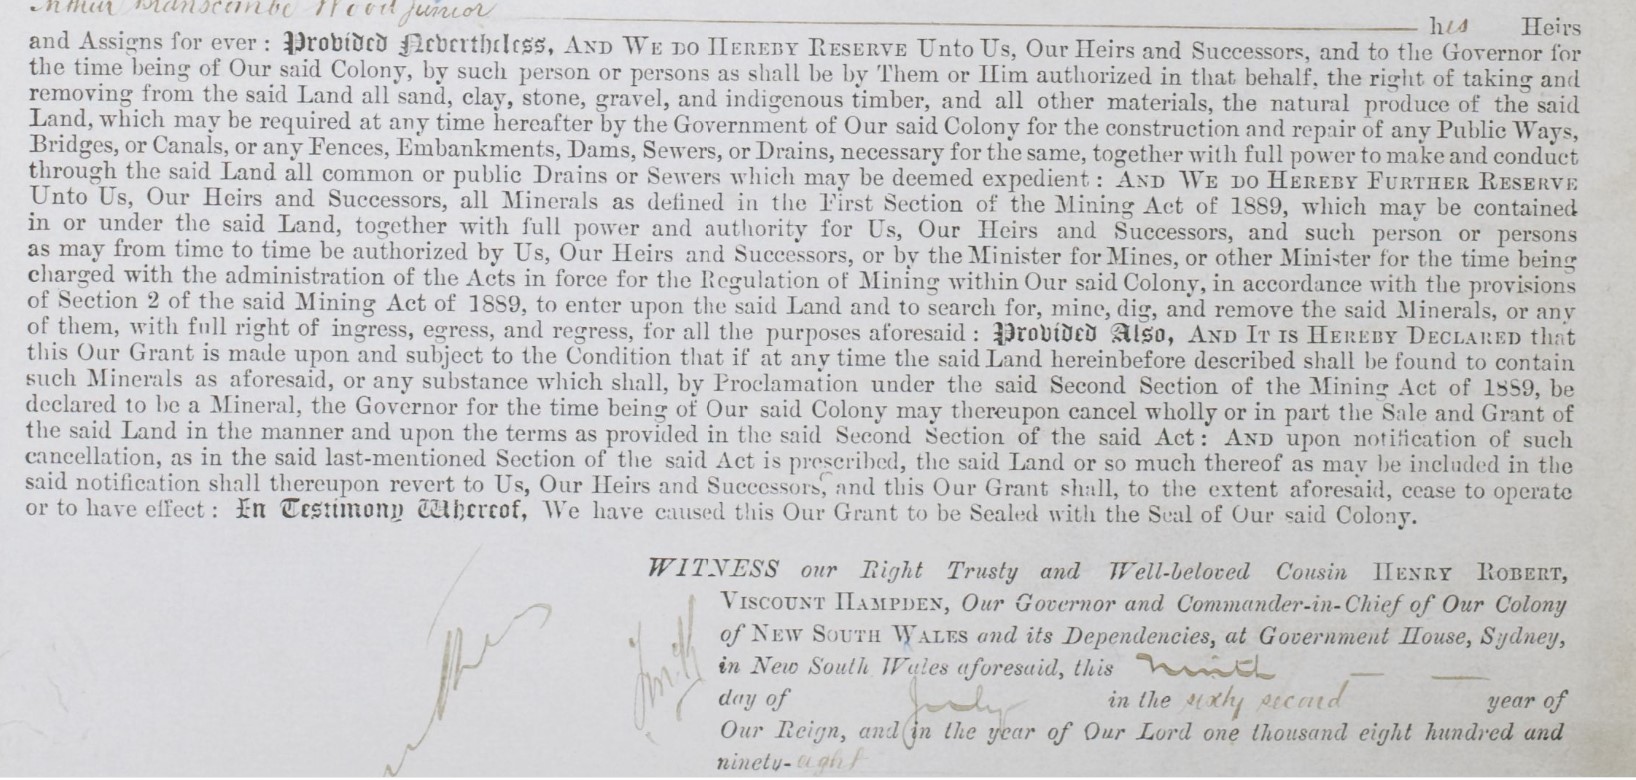 Arthur Branscombe Wood Junior his Heirs
and Assigns for ever : Provided Nevertheless, AND WE DO HEREBY RESERVE Unto Us, Our Heirs and Successors, and to the Governor for
the time being of Our said Colony, by such person or persons as shall be by Them or Him authorized in that behalf, the right of taking and
removing from the said Land all sand, clay, stone, gravel, and indigenous timber, and all other materials, the natural produce of the said
Land, which may be required at any time hereafter by the Government of Our said Colony for the construction and repair of any Public Ways,
Bridges, or Canals, or any Fences, Embankments, Dams, Sewers, or Drains, necessary for the same, together with full power to make and conduct
through the said Land all common or public Drains or Sewers which may be deemed expedient : AND WE DO HEREBY FURTHER RESERVE
Unto Us, Our Heirs and Successors, all Minerals as defined in the First Section of the Mining Act of 1889, which may be contained
in or under the said Land, together with full power and authority for Us, Our Heirs and Successors, and such person or persons
as may from time to time be authorized by Us, Our Heirs and Successors, or by the Minister for Mines, or other Minister for the time being
charged with the administration of the Acts in force for the Regulation of Mining within Our said Colony, in accordance with the provisions
of Section 2 of the said Mining Act of 1889, to enter upon the said Land and to search for, mine, dig, and remove the said Minerals, or any
of them, with full right of ingress, egress, and regress, for all the purposes aforesaid : Provided Also, AND IT IS HEREBY DECLARED that
this Our Grant is made upon and subject to the Condition that if at any time the said Land hereinbefore described shall be found to contain
such Minerals as aforesaid, or any substance which shall, by Proclamation under the said Second Section of the Mining Act of 1889, be
declared to be a Mineral, the Governor for the time being of Our said Colony may thereupon cancel wholly or in part the Sale and Grant of
the said Land in the manner and upon the terms as provided in the said Second Section of the said Act : AND upon notification of such
cancellation, as in the said last-mentioned Section of the said Act is prescribed, the said Land or so much thereof as may be included in the
said notification shall thereupon revert to Us, Our Heirs and Successors, and this Our Grant shall, to the extent aforesaid, cease to operate
or to have effect : In Testimony Whereof, We have caused this Our Grant to be Sealed with the Seal of Our said Colony.
WITNESS our Right Trusty and Well-beloved Cousin HENRY ROBERT,
VISCOUNT HAMPDEN, Our Governor and Commander-in-Chief of Our Colony
of NEW SOUTH WALES and its Dependencies, at Government House, Sydney,
in New South Wales aforesaid, this ninth
day of July in the sixty second year of
Our Reign, and in the year of Our Lord one thousand eight hundred and
ninety-eight